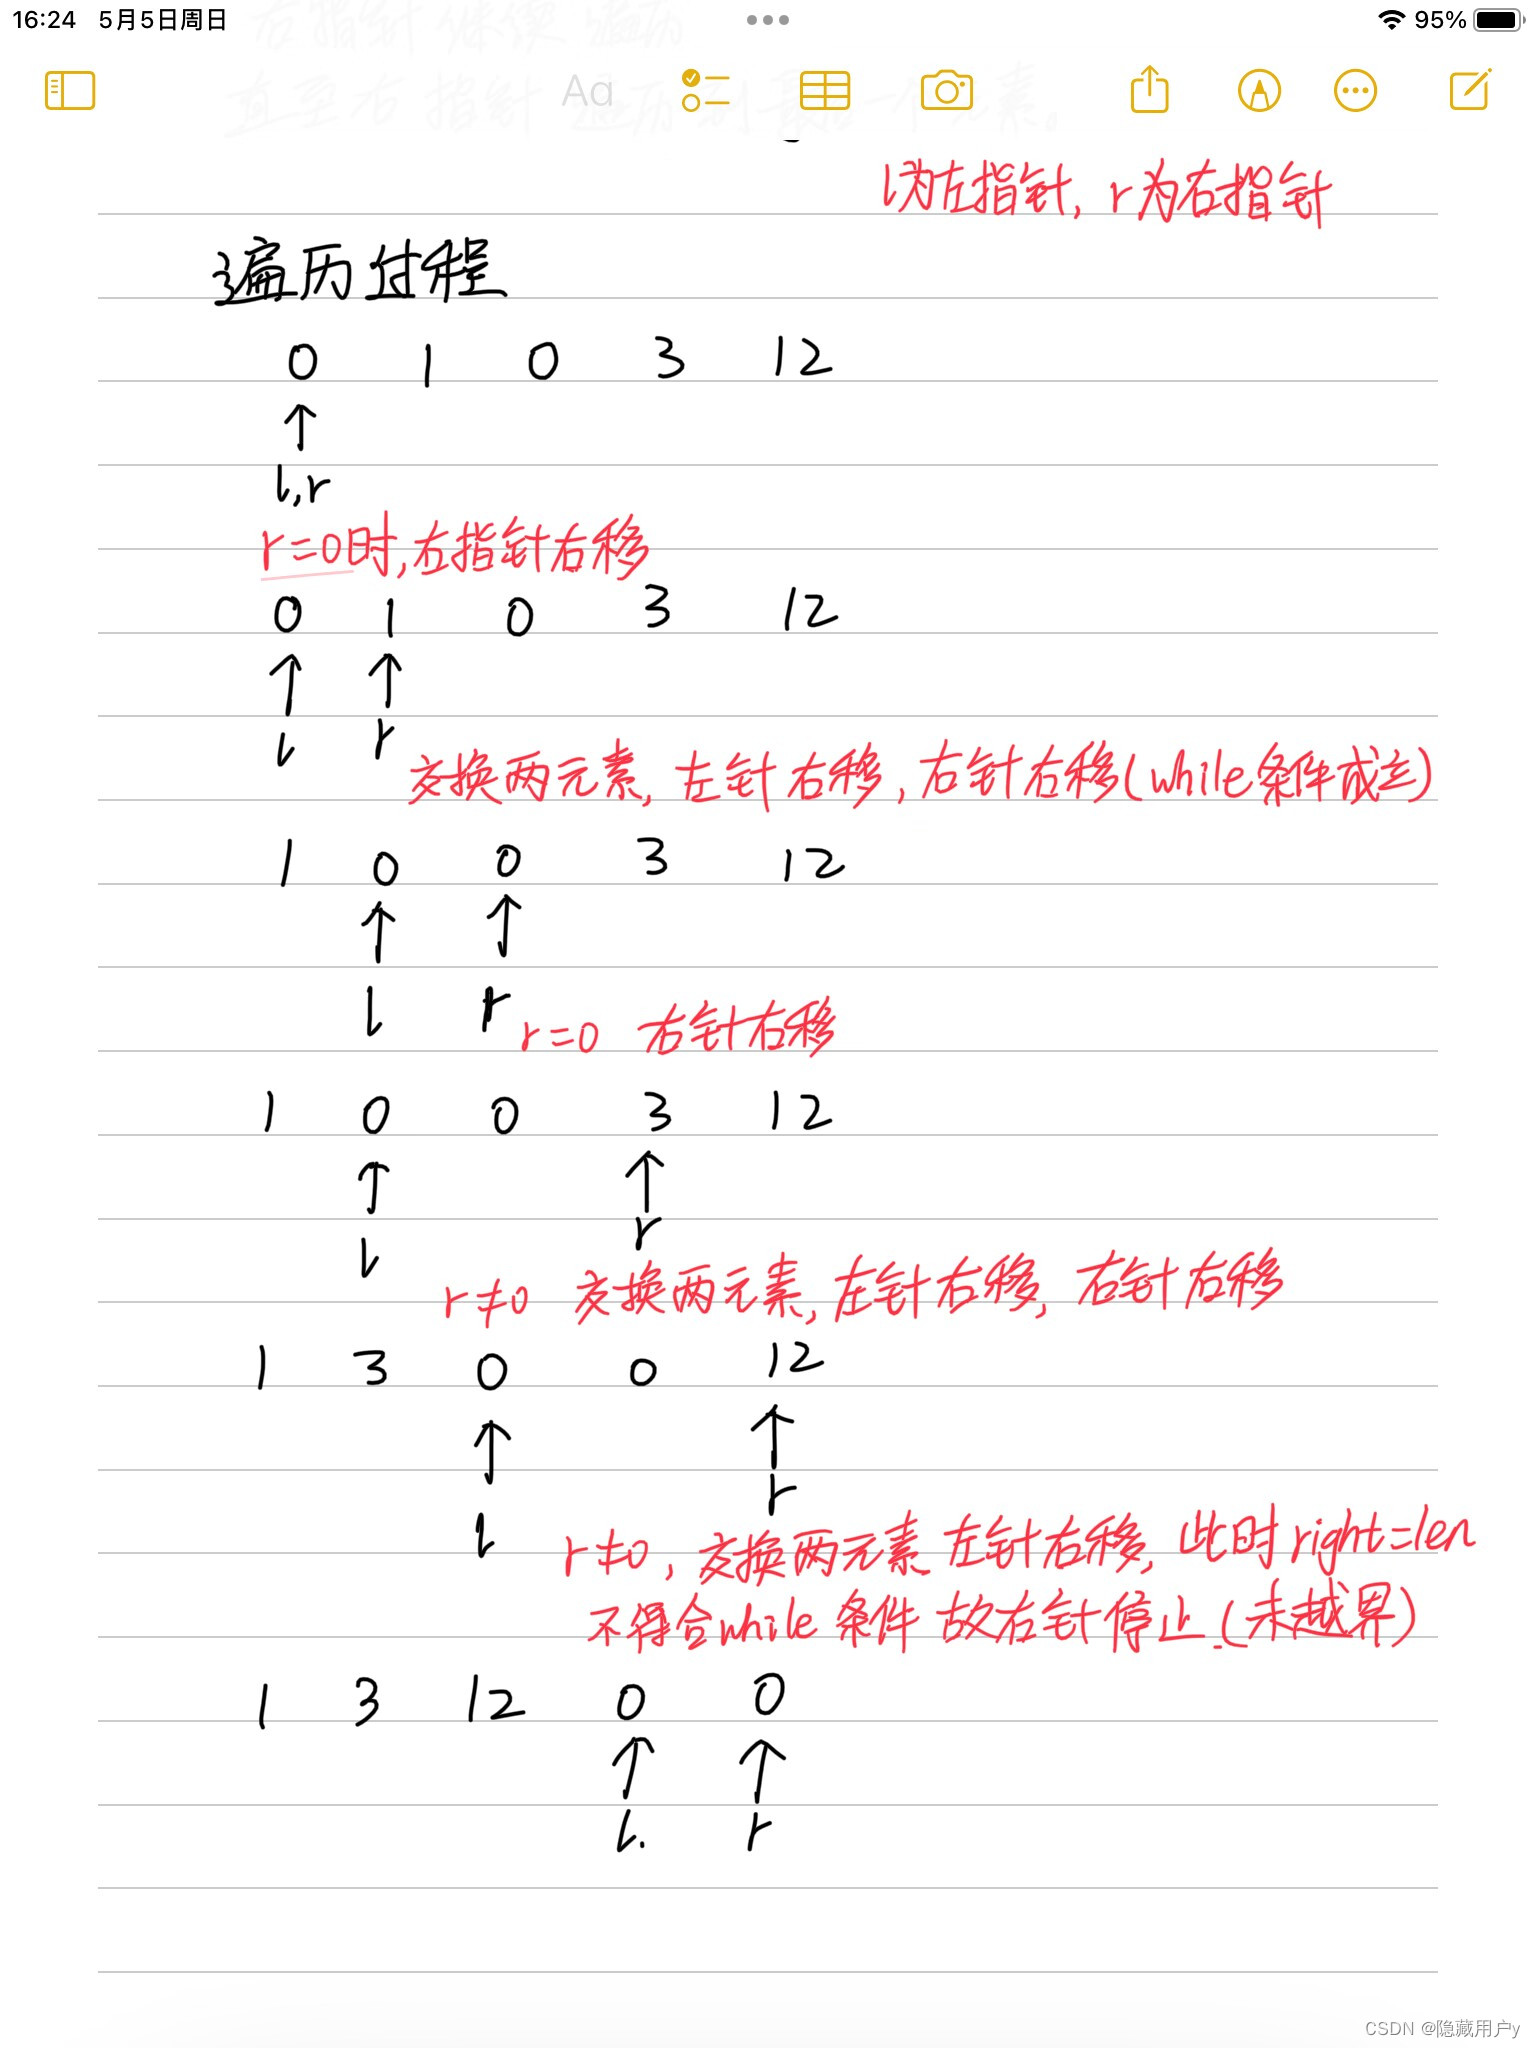 16:24 5月5日周日 95%
右指针继续遍历
直至右指针遍历到最后一个元素。
Aa
l为左指针, r为右指针
遍历过程
0 1 0 3 12
l,r
r=0时,右指针右移
0 1 0 3 12
l r
交换两元素, 左针右移, 右针右移(while条件成立)
1 0 0 3 12
l r
r=0 右针右移
1 0 0 3 12
l r
r≠0 交换两元素, 左针右移, 右针右移
1 3 0 0 12
l r
r≠0, 交换两元素 左针右移, 此时right=len
不符合while条件 故右针停止.(未越界)
1 3 12 0 0
l. r
CSDN @隐藏用户y